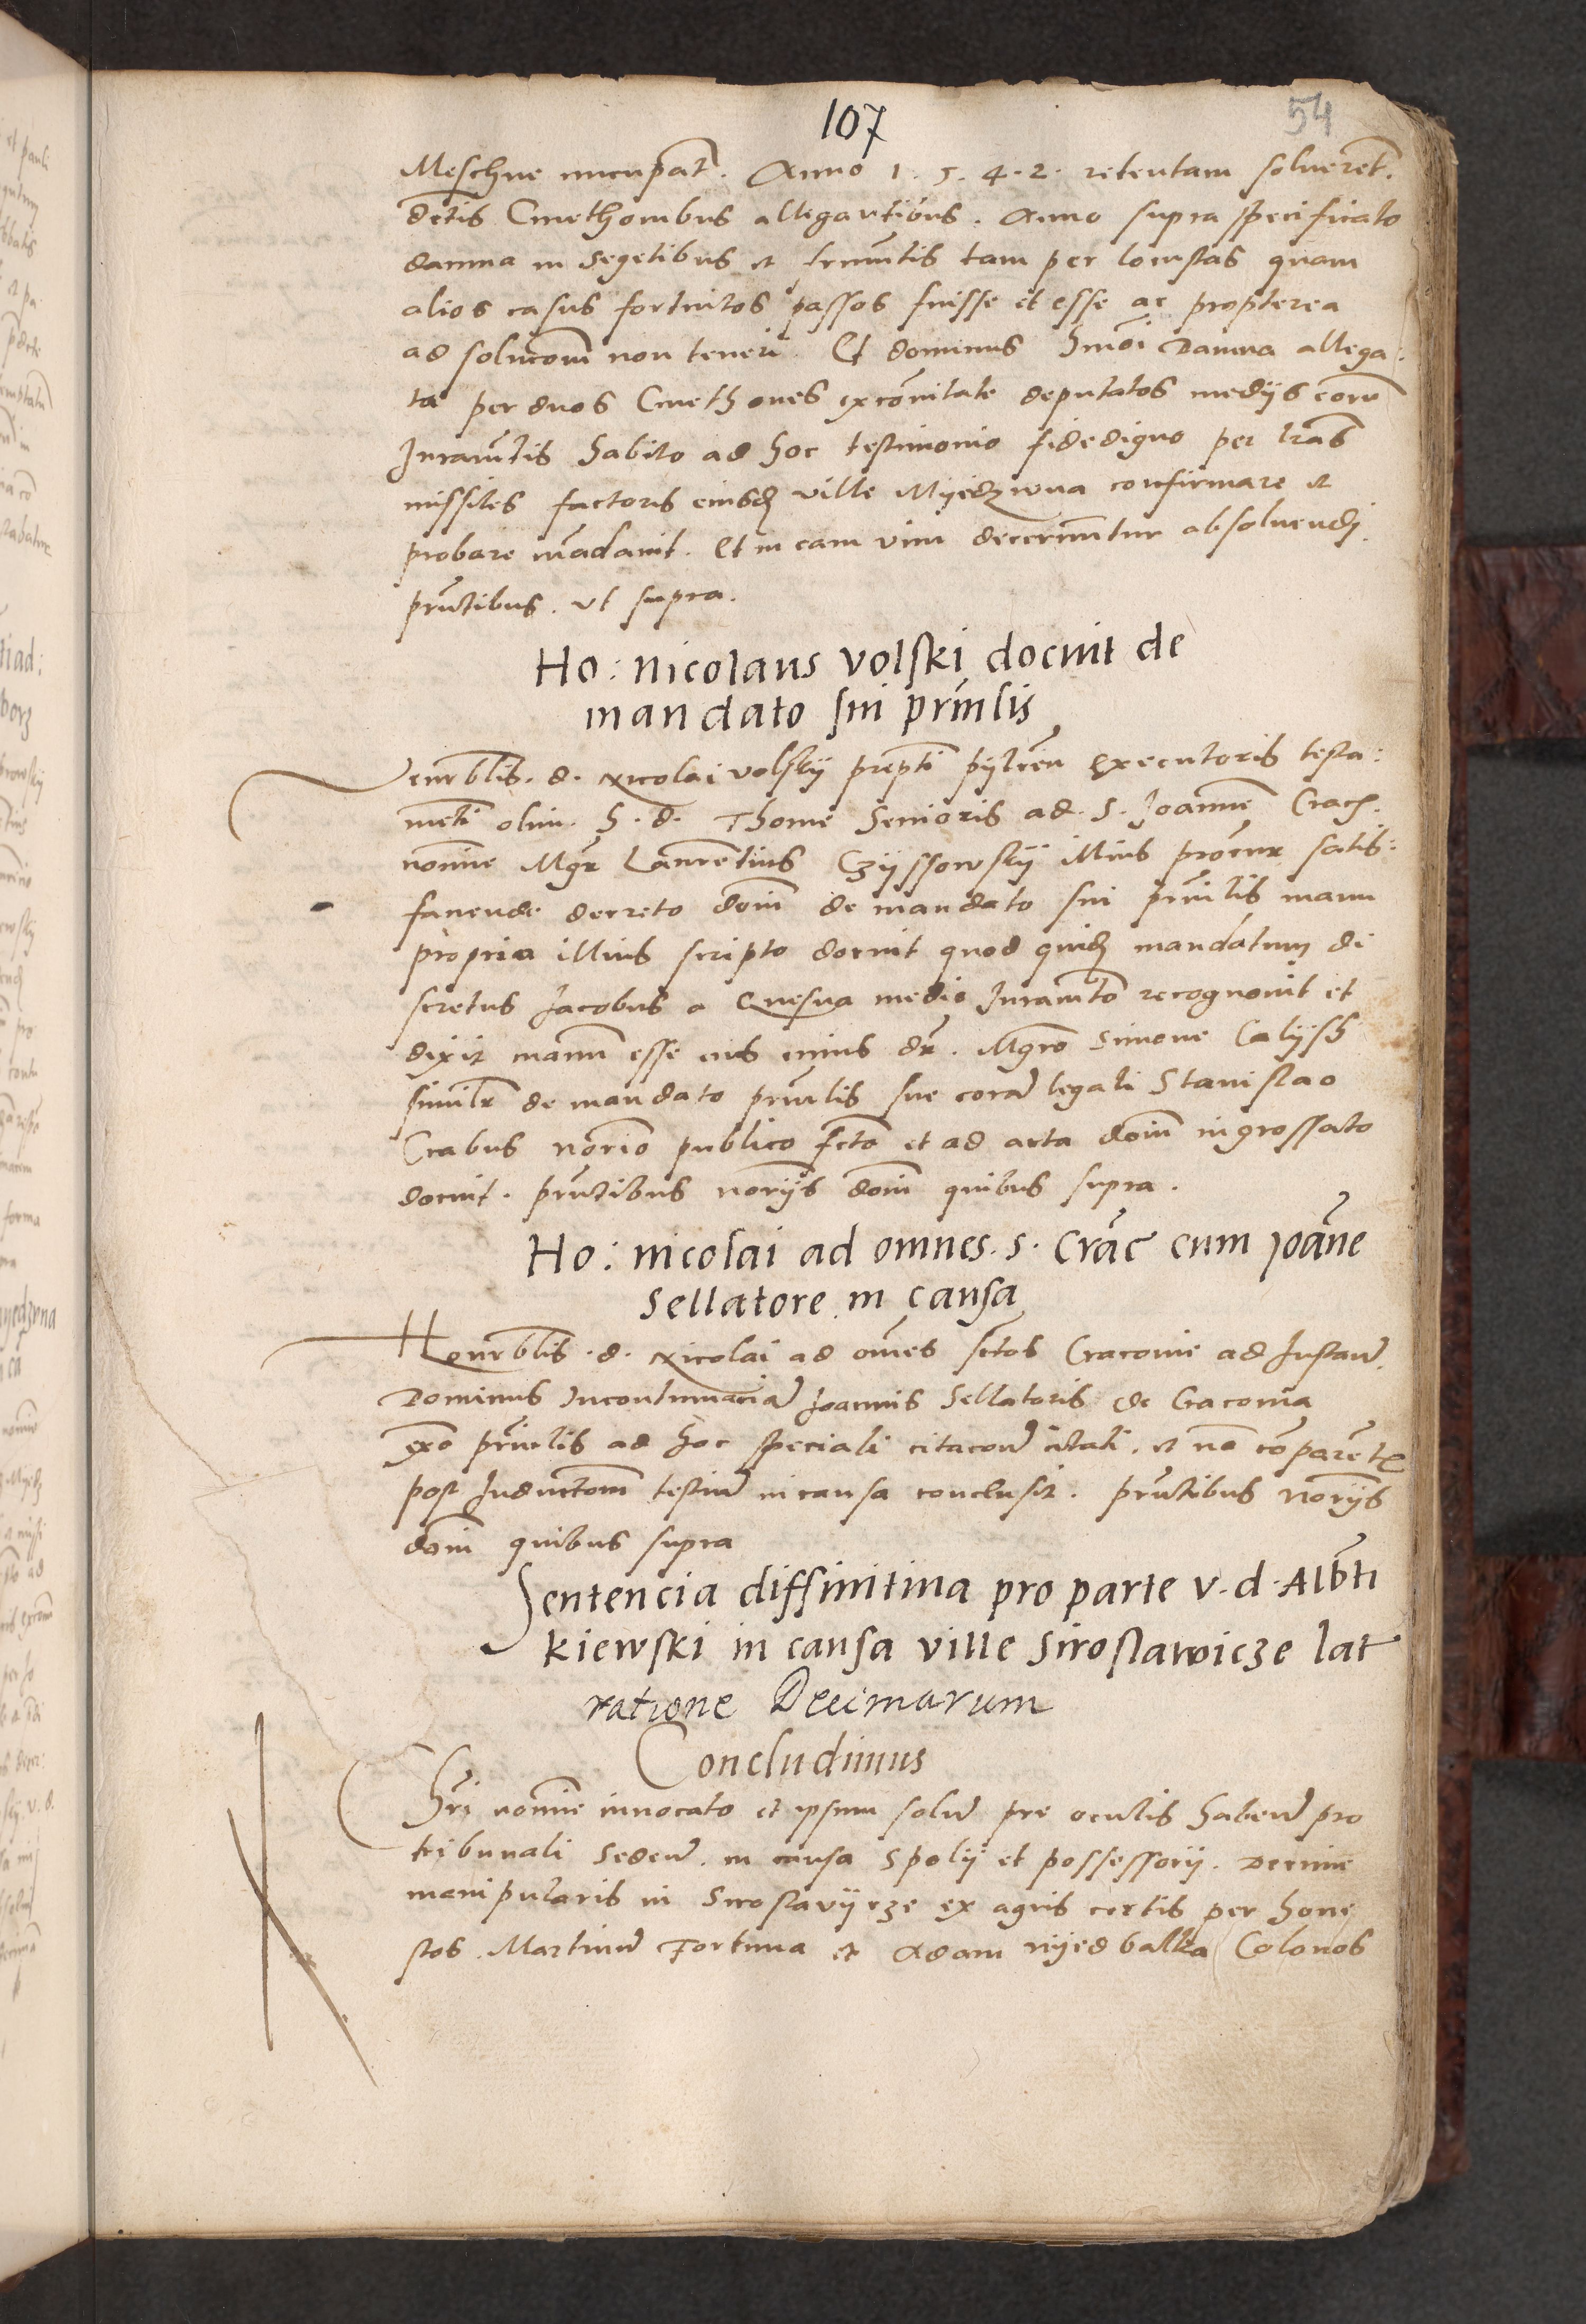 107
54
Meschne nu͂cupat͂. Anno 1.5.4.2. retentam solverent͂.
dc͂tis Cmethonibus allegantibus. Anno supra specificato
damna in segetibus et frum͂tis tam per locustas quam
alios casus fortuitos passos fuisse et esse ac propterea
ad soluco͂m non teneri. Et dominus hmo͂i Damna allega:
ta per duos Cmethones ex co͂itate deputatos medijs eoru͂
Juram͂tis habito ad hoc testimonio fidedigno per l͂ras
missiles factoris eiusd͂ ville Myedzwna confirmare et
probare ma͂dauit. Et in eam vim decernuntur absoluendj.
pn͂tibus. vt supra.
Ho: Nicolaus Volski docuit de
mandato sui prin͂lis
Venerb͂lis. d. Nicolai Volskij prepti͂ pylcen͂ executoris testa:
menti͂ olim. h. d. Thome Senioris ad. S. Joanne͂ Crac͂.
nomine Mgr͂ Laurentius Czyssowskij illius procur͂ satis:
faciende decreto do͂ni de mandato sui prin͂lis manu
propria illius scripto docuit quod quid͂ mandatum di
scretus Jacobus a Quesna medio Juram͂to recognouit et
dixit manu͂ esse eius cuius dr͂. Mgro͂ Simone Calijsch
similr͂ de mandato prin͂lis sue cora͂ legali Stanislao
Crabus nor͂io publico fc͂to et ad acta do͂ni ingrossato
docuit. pn͂tibus nor͂ijs do͂ni quibus supra.
Ho: nicolai ad omnes. s. Crac͂ cum Joan͂e
Sellatore in causa
Honorb͂lis. d. Nicolai ad om͂es sc͂tos Cracovie ad Instan͂.
Dominus Incontumacia͂ Joannis Sellatoris de Cracovia
exo͂ prin͂lis ad hoc speciali citacon͂ citati. et no͂ co͂parent͂
post Inductio͂m testiu͂ in causa conclusit. pn͂tibus Nor͂ijs
do͂ni quibus supra
Sentencia diffinitiua pro parte v. d. Alb͂ti
kiewski in causa ville Siroslawicze lat͂
ratione Decimarum
Concludimus
Chr͂i nomine innocato et ipsum solu͂ pre oculis haben͂ pro
tribunali seden͂. in causa Spolij et possessorij. Decime
manipularis in Siroslavijcze ex agris certis per hone
stos. Martinu͂ Fortuna et Adam Nijedbalka Colonos